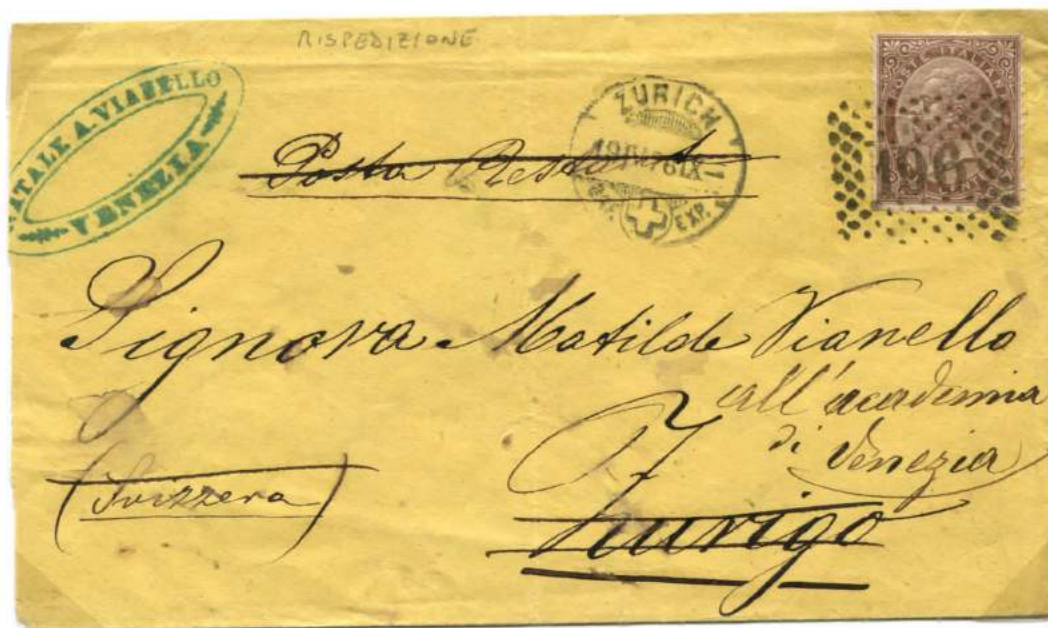 RISPEDIZIONE
VITALE A. VIANELLO
VENEZIA
POSTE ITALIANE
196
ZÜRICH
EXP.
Posta Restante
Signora Matilde Vianello
all'academia
di Venezia
(Svizzera)
Zurigo